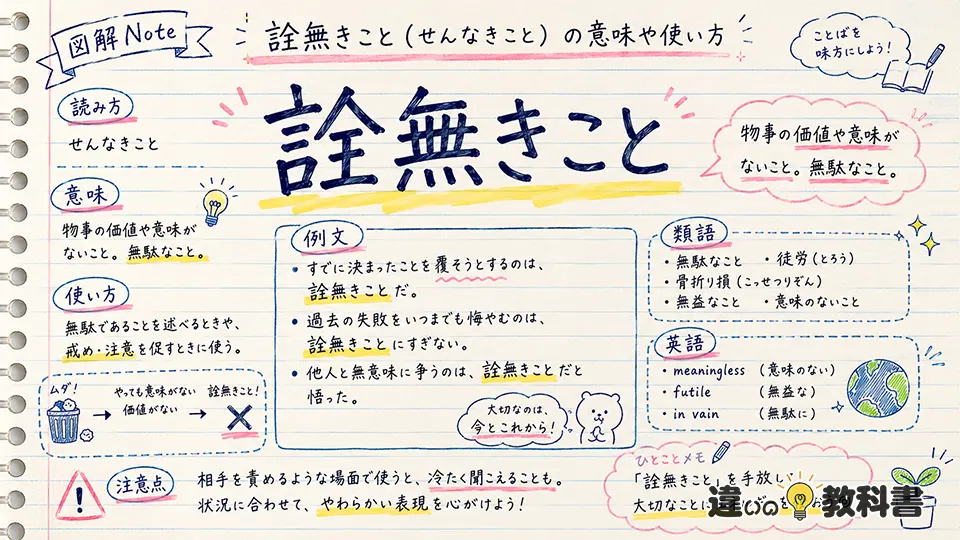 図解 Note
詮無きこと（せんなきこと）の意味や使い方
ことばを
味方にしよう！
詮無きこと
読み方
せんなきこと
物事の価値や意味が
ないこと。無駄なこと。
意味
物事の価値や意味が
ないこと。無駄なこと。
使い方
無駄であることを述べるときや、
戒め・注意を促すときに使う。
ムダ！
やっても意味がない
価値がない
詮無きこと！
例文
・すでに決まったことを覆そうとするのは、
詮無きことだ。
・過去の失敗をいつまでも悔やむのは、
詮無きことにすぎない。
・他人と無意味に争うのは、詮無きことだと
悟った。
大切なのは、
今とこれから！
類語
・無駄なこと ・徒労（とろう）
・骨折り損（こっせつりぞん）
・無益なこと ・意味のないこと
英語
・meaningless （意味のない）
・futile （無益な）
・in vain （無駄に）
注意点
相手を責めるような場面で使うと、冷たく聞こえることも。
状況に合わせて、やわらかい表現を心がけよう！
ひとことメモ
「詮無きこと」を手放し
大切なことに
違いの教科書